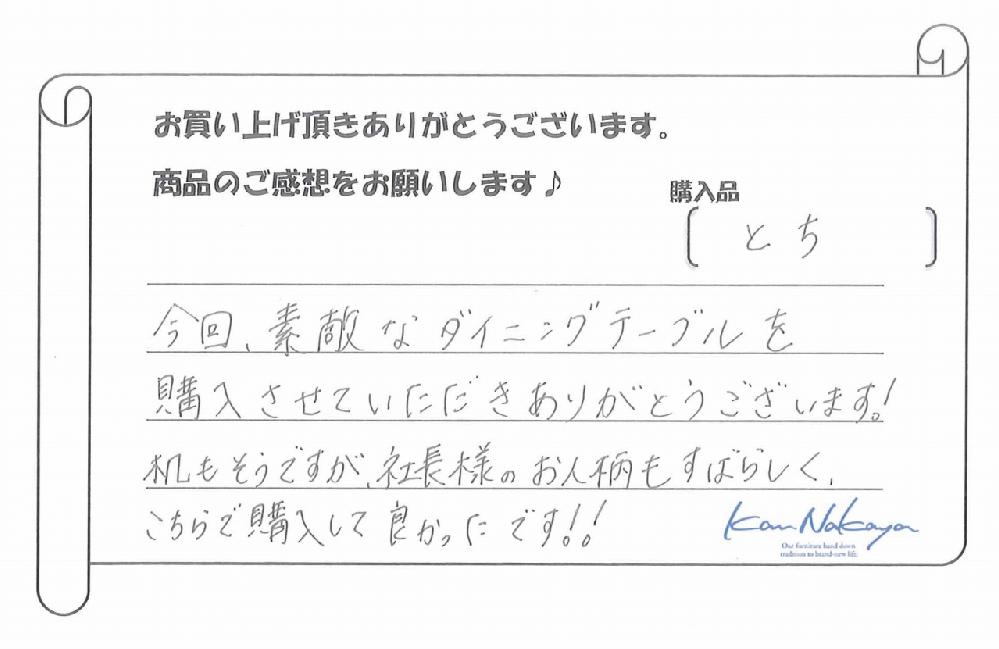 お買い上げ頂きありがとうございます。
商品のご感想をお願いします♪
購入品
とち
今回、素敵なダイニングテーブルを
購入させていただきありがとうございます!
机もそうですが、社長様のお人柄もすばらしく、
こちらで購入して良かったです!!
Kan Nakaya
Our furniture hand down
tradition to brand-new life.